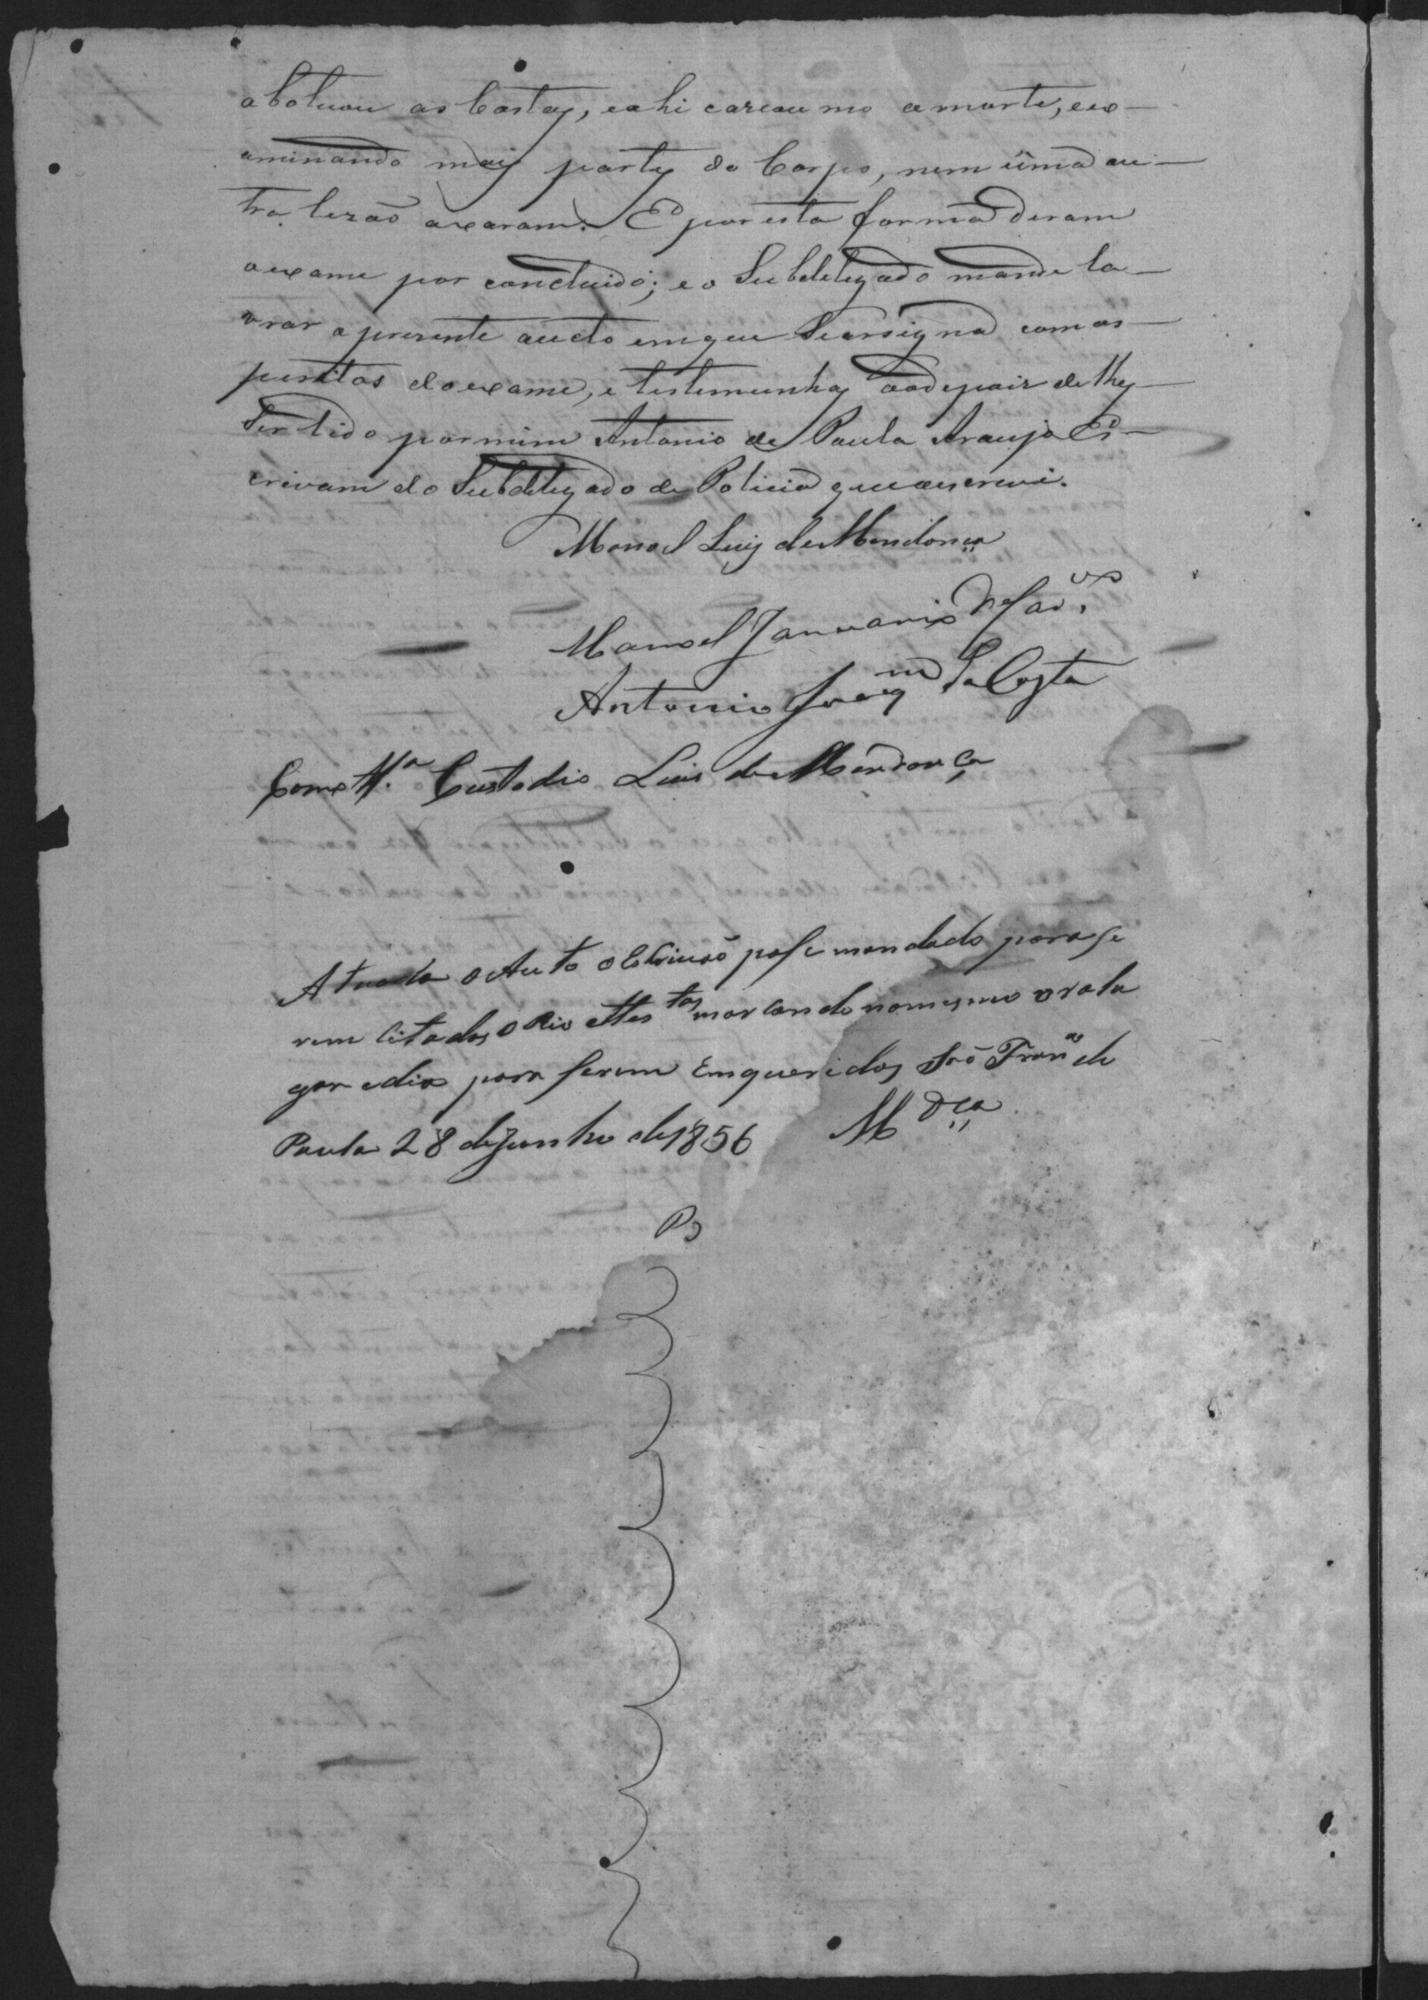 as Costas, e ahi a morte, eex-
aminando mais partes do Corpo, nem uma ou-
tra lezaõ axaram. E por esta forma deram
o exame por concluido; e o Subdelegado manda la-
vrar o prezente aucto em que se assigna com os
peritos do exame, e testemunhas de lhes
ser lido por mim Antonio de Paula Araujo Es-
crivam do Subdelegado de Policia que escrevi.
Manoel Luis de Mendonça
Manoel Januario
Antonio Joaq.m da Costa
Como tt.a Custodio Luis de Mendonça
o Auto o Escrivaõ pase mandado para se
rem Citados o Rio e tes.tas marcando no mesmo o
gar e dia para serem Emqueridos Saõ Fran.co de
Paula 28 de Junho de 1856 M dça